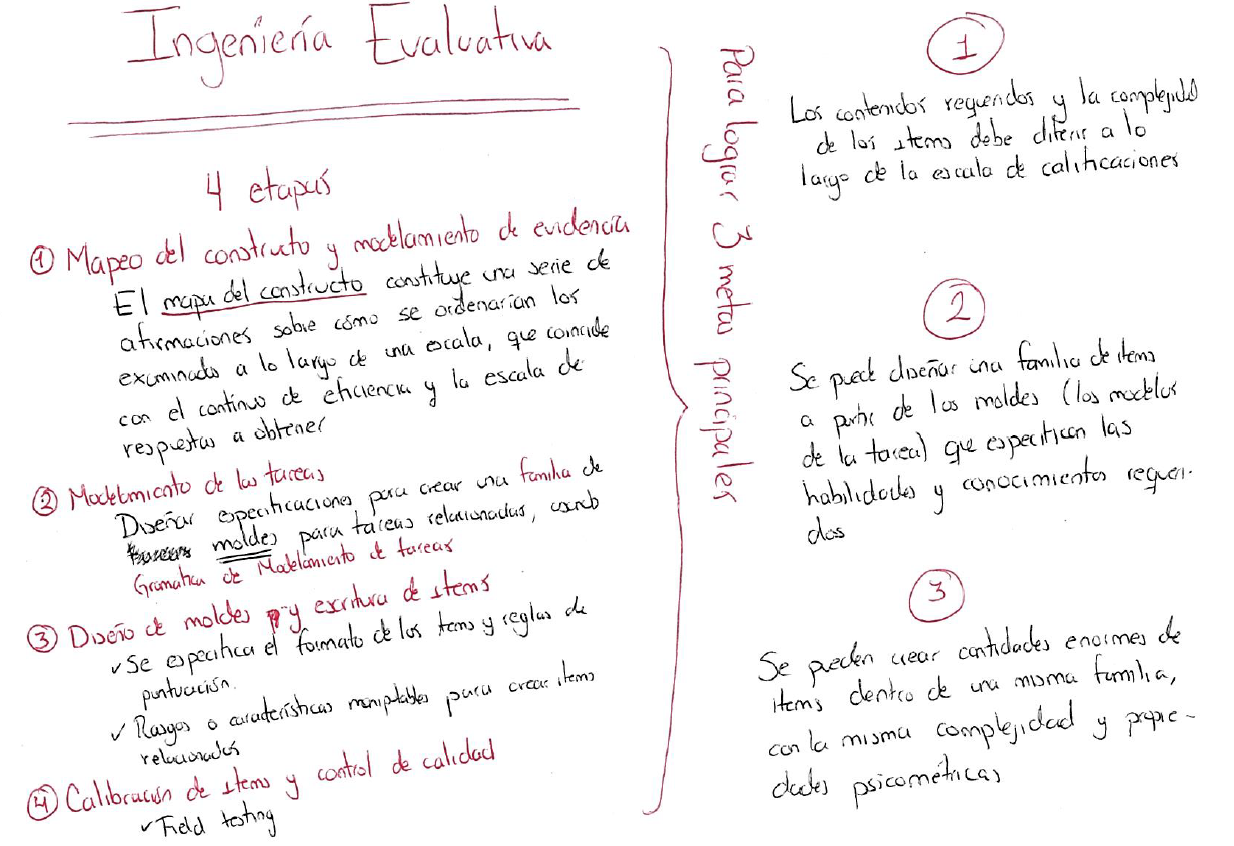 Ingeniería Evaluativa
4 etapas
① Mapeo del constructo y modelamiento de evidencia
El mapa del constructo constituye una serie de
afirmaciones sobre cómo se ordenarían los
examinados a lo largo de una escala, que coincide
con el continuo de eficiencia y la escala de
respuestas a obtener
② Modelamiento de las tareas
Diseñar especificaciones para crear una familia de
moldes para tareas relacionadas, usando
Gramática de Modelamiento de tareas
③ Diseño de moldes y escritura de items
✓ Se especifica el formato de los items y reglas de
puntuación.
✓ Rasgos o características maniplables para crear items
relacionados
④ Calibración de items y control de calidad
✓ Field testing
Para lograr 3 metas principales
1
Los contenidos requeridos y la complejidad
de los items debe diferir a lo
largo de la escala de calificaciones
2
Se puede diseñar una familia de items
a partir de los moldes (los modelos
de la tarea) que especifican las
habilidades y conocimientos requeri-
dos
3
Se pueden crear cantidades enormes de
items dentro de una misma familia,
con la misma complejidad y propie-
dades psicométricas